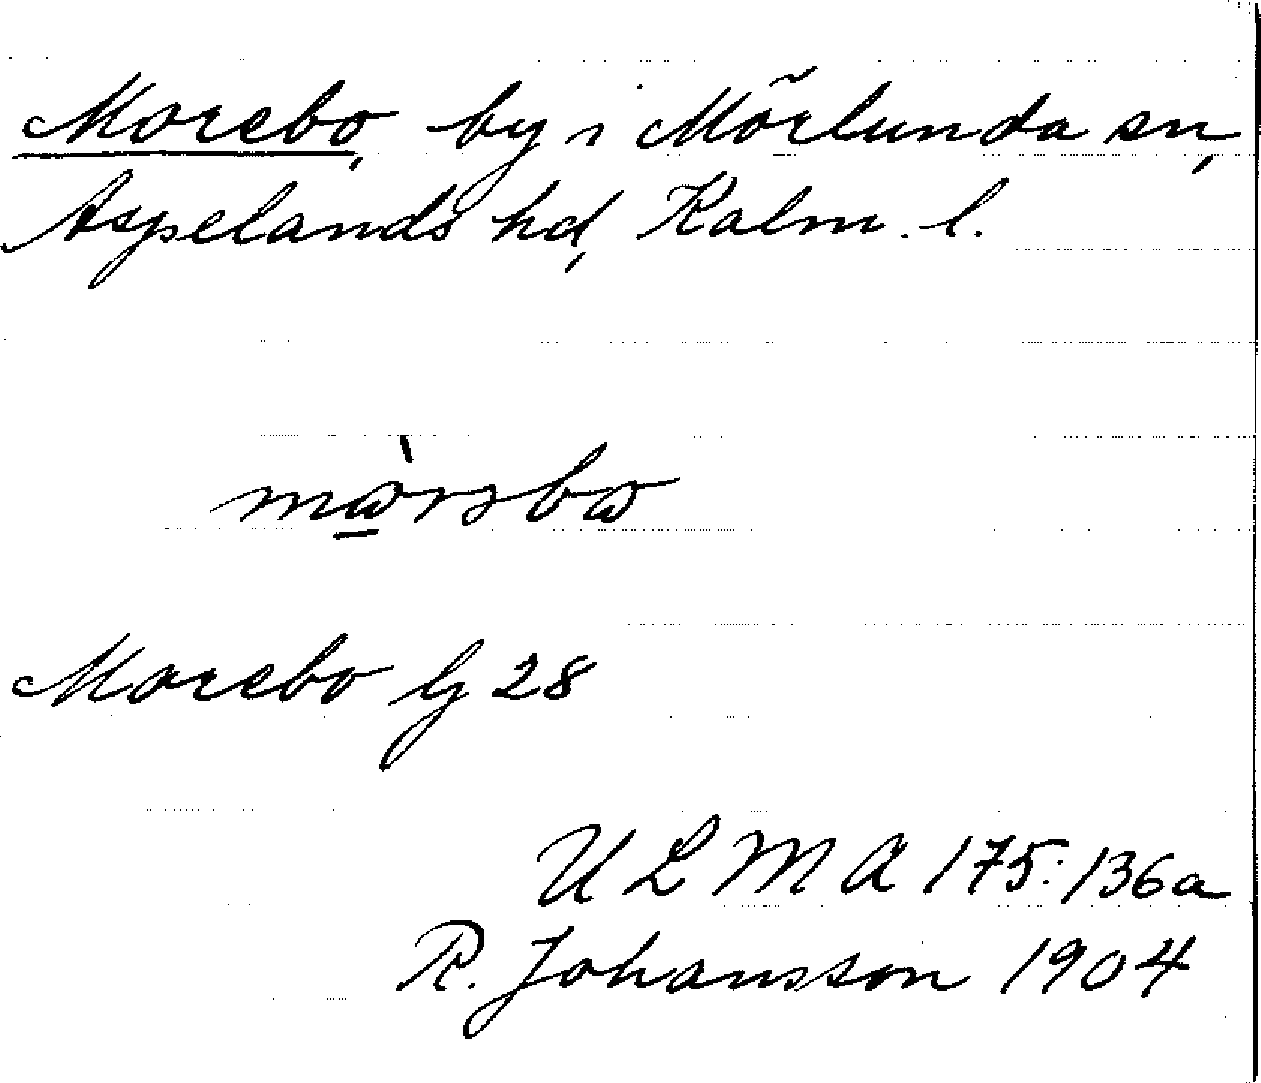 Morebo, by i Mörlunda sn,
Aspelands hd, Kalm. l.
Morebo G 28
U L M A 175:136a
R. Johansson 1904